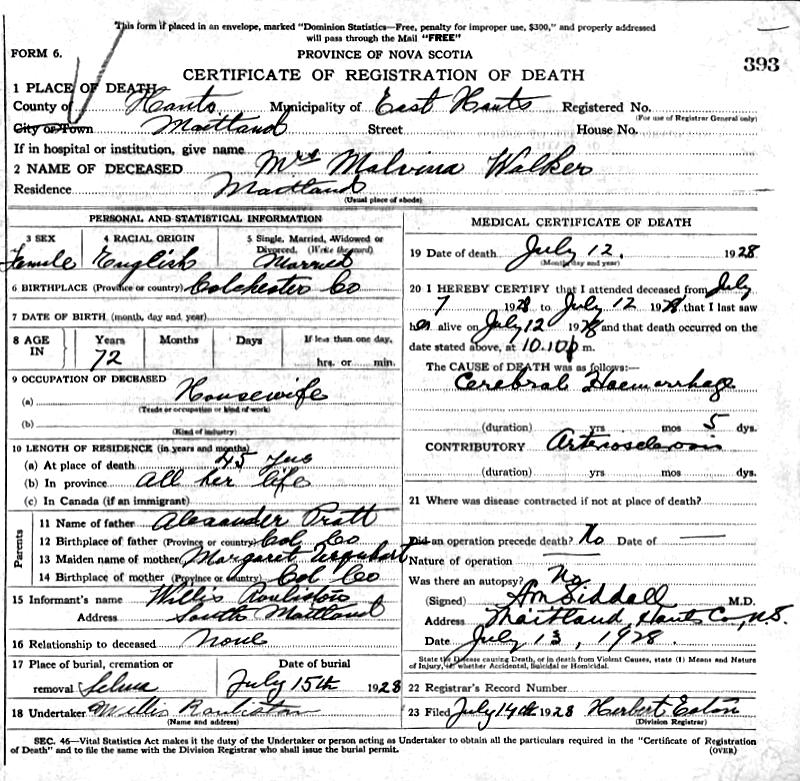 This form if placed in an envelope, marked "Dominion Statistics—Free, penalty for improper use, $300," and properly addressed
will pass through the Mail "FREE"
FORM 6.
PROVINCE OF NOVA SCOTIA
CERTIFICATE OF REGISTRATION OF DEATH
393
1 PLACE OF DEATH
County of Hants Municipality of East Hants Registered No.
(For use of Registrar General only)
City or Town Maitland Street House No.
If in hospital or institution, give name
2 NAME OF DECEASED Mrs Malvina Walker
Residence Maitland
(Usual place of abode)
PERSONAL AND STATISTICAL INFORMATION
3 SEX 4 RACIAL ORIGIN 5 Single, Married, Widowed or
Divorced, (Write the word)
Female English Married
6 BIRTHPLACE (Province or country) Colchester Co
7 DATE OF BIRTH (month, day and year)
8 AGE IN Years Months Days If less than one day,
72 hrs. or min.
9 OCCUPATION OF DECEASED
(a) Housewife
(Trade or occupation or kind of work)
(b)
(Kind of industry)
10 LENGTH OF RESIDENCE (in years and months)
(a) At place of death 45 yrs
(b) In province all her life
(c) In Canada (if an immigrant)
Parents
11 Name of father Alexander Pratt
12 Birthplace of father (Province or country) Col Co
13 Maiden name of mother Margaret Urquhart
14 Birthplace of mother (Province or country) Col Co
15 Informant's name Willis Roulston
Address South Maitland
16 Relationship to deceased none
17 Place of burial, cremation or Date of burial
removal Selma July 15th 1928
18 Undertaker Willis Roulston
(Name and address)
MEDICAL CERTIFICATE OF DEATH
19 Date of death July 12. 1928
(Month, day and year)
20 I HEREBY CERTIFY that I attended deceased from July
7 1928 to July 12 1928 that I last saw
her alive on July 12 1928 and that death occurred on
date stated above, at 10.10 p m.
The CAUSE of DEATH was as follows:—
Cerebral Haemorrhage
(duration) yrs mos 5 dys.
CONTRIBUTORY Arteriosclerosis
(duration) yrs mos dys.
21 Where was disease contracted if not at place of death?
Did an operation precede death? No Date of —
Nature of operation —
Was there an autopsy? No
(Signed) AM Siddall M.D.
Address Maitland, Hants Co, N.S.
Date July 13, 1928.
State the Disease causing Death, or in death from Violent Causes, state (1) Means and Nature
of Injury, (2) whether Accidental, Suicidal or Homicidal.
22 Registrar's Record Number
23 Filed July 14th 1928 Herbert Eaton
(Division Registrar)
SEC. 46—Vital Statistics Act makes it the duty of the Undertaker or person acting as Undertaker to obtain all the particulars required in the "Certificate of Registration
of Death" and to file the same with the Division Registrar who shall issue the burial permit. (OVER)